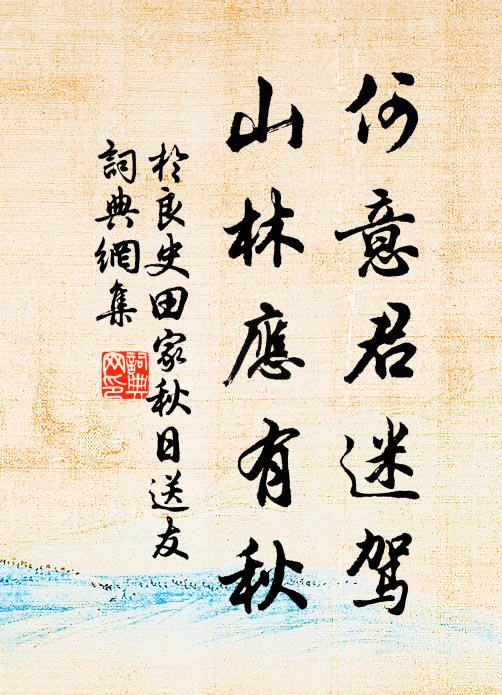 何意君迷駕
山林應有秋
於良史田家秋日送友
詞典網集
詞典網印